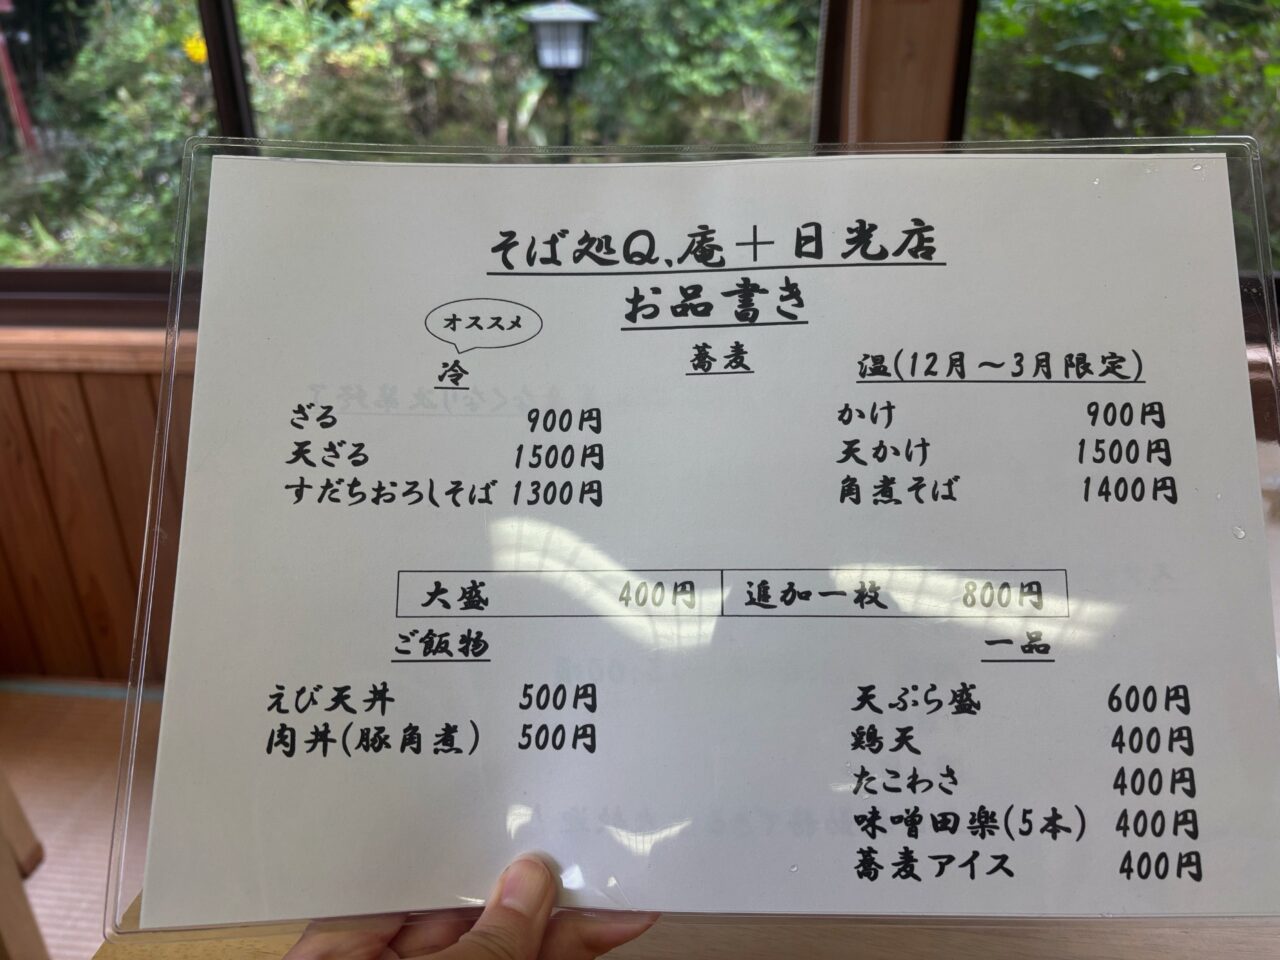 そば処Q.庵＋日光店
お品書き
オススメ
冷
蕎麦
温(12月～3月限定)
ざる 900円
天ざる 1500円
すだちおろしそば 1300円
かけ 900円
天かけ 1500円
角煮そば 1400円
大盛 400円
追加一枚 800円
ご飯物
えび天丼 500円
肉丼(豚角煮) 500円
一品
天ぷら盛 600円
鶏天 400円
たこわさ 400円
味噌田楽(5本) 400円
蕎麦アイス 400円